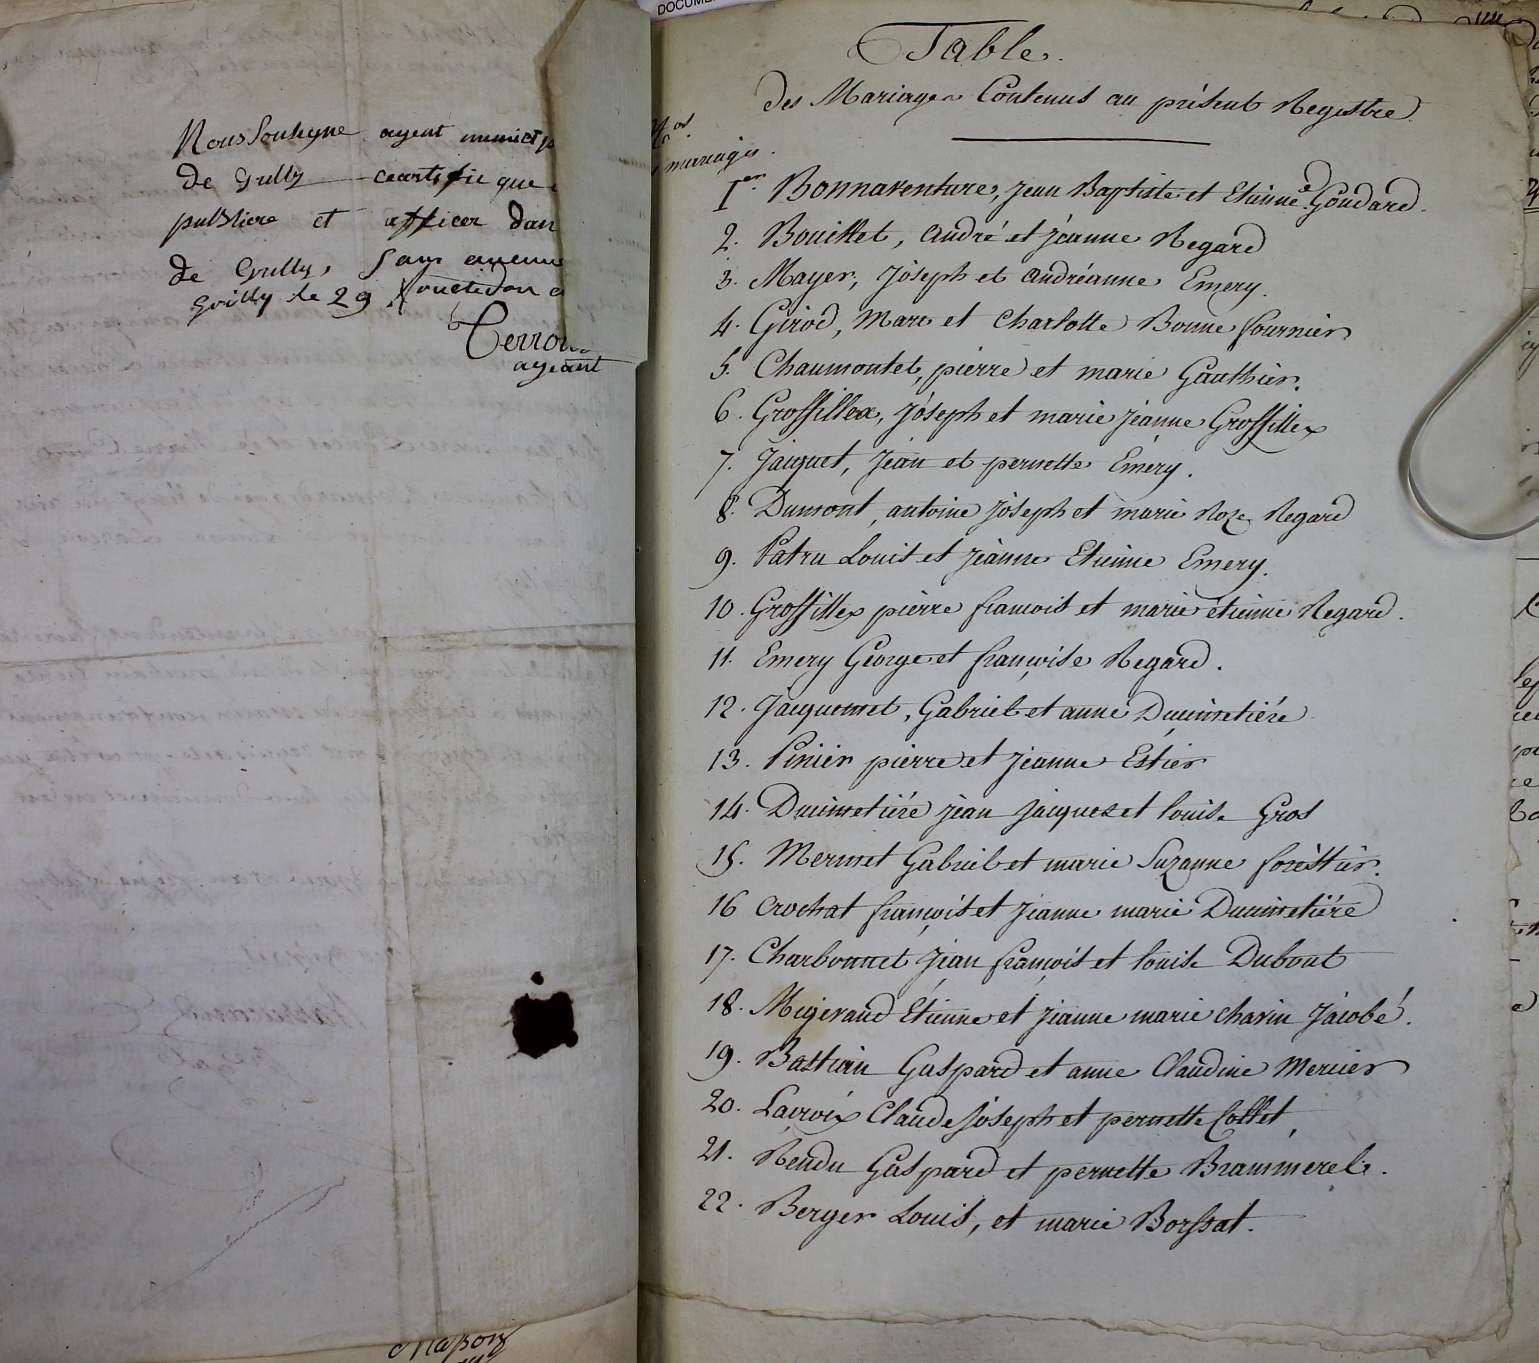 Nous Sousigne agent municip
de Grilly ceartifie que
publiere et afficer dan
de Grilly, Sans aucune
Grilly le 29 fructidor a
Terrou
ageant
DOCUME
Table.
des Mariages Contenus au présent Registre
Nos
mariages.
1er. Bonnaventure, jean Baptiste et Etienne Goudard.
2. Bouillet, andré et jéanne Regard
3. Mayer, Joseph et andréanne Emery.
4. Girod, Marc et Charlotte Bonne fournier
5. Chaumontet, pierre et marie Gauthier.
6. Grossillex, jóseph et marie jéanne Grossillex
7. Jacquet, Jean et pernette Emery.
8. Dumont, antoine joseph et marie Roze Regard
9. Patru Louis et jéanne Etienne Emery.
10. Grossillex pierre francois et marie etienne Regard.
11. Emery George et françoise Regard.
12. Jacquemet, Gabriel et anne Ducimetiére
13. Pinier pierre et jeanne Estier
14. Ducimetiére jean jacques et louise Gros
15. Mermet Gabriel et marie Suzanne foréstier.
16 Crochat françois et jeanne marie Ducimetiére
17. Charbonnet Jean françois et louise Dubout
18. Megevand Etienne et jeanne marie charin Jacobé.
19. Bastian Gaspard et anne Claudine Mercier
20. Lacroix Claude Joseph et pernette Collet,
21. Rendu Gaspard et pernette Brammerel.
22. Berger Louis, et marie Borssat.